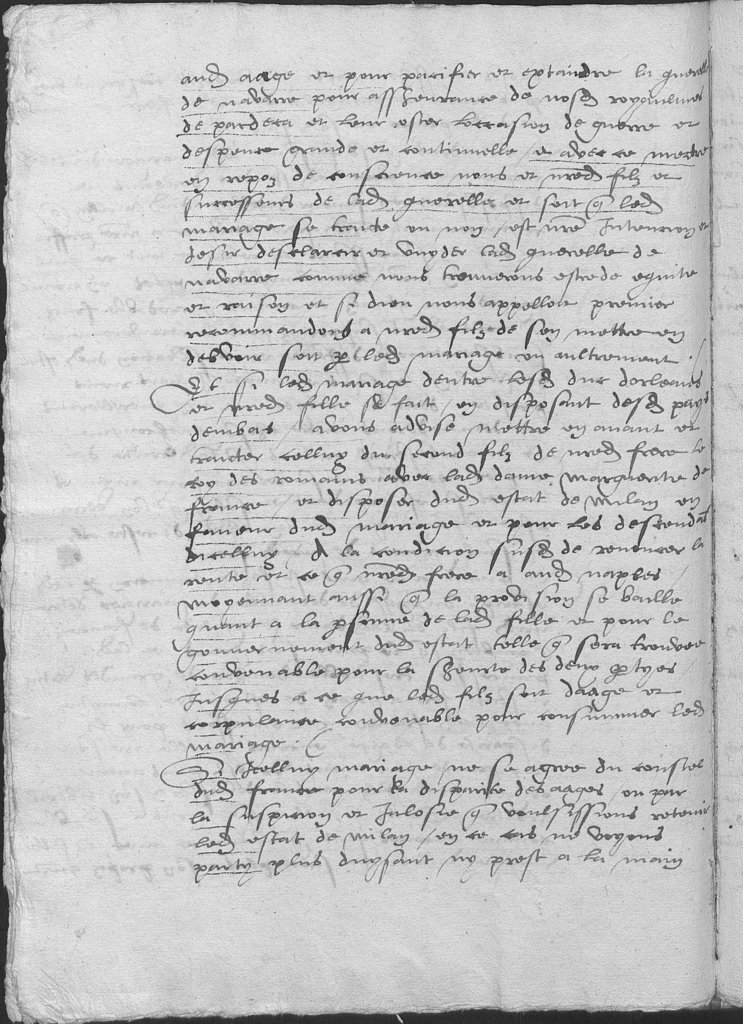 aud aage et pour pacifier et extaindre la querelle
de navarre pour assheurance de nosd royaulmes
de pardeca et leur oster loccasion de guerre et
despence grande et continuelle / et avec ce mectre
en repoz de conscience nous et nred filz et
successeurs de lad querelle et soit q led
mariage se traicte ou non / est nre Intencion et
desir desclarcir et vuyder lad querelle de
navarre comme nous trouverons estre de equite
et raison et si dieu nous appelloit premier
recommandons a nred filz de sen mettre en
debvoir soit p led mariage ou aultrement /
Et si led mariage dentre lesd duc dorleans
et nred fille se fait / en disposant desd pays
dembas / avons advise mettre en avant et
traicter celluy du second filz de nred frere le
roy des romains avec lad dame marguerite de
france / et disposer dud estat de milan en
faveur dud mariage et pour les descendans
dicelluy / A la condicion susd de renoncer la
rente et ce q nred frere a aud naples /
moyennant aussi q la provision se baille
quant a la psonne de lad fille et pour le
gouvernement dud estat telle q sera trouvee
convenable pour la sheurte des deux ptyes
Jusques a ce que led filz soit daage et
corpulance convenable pour consummer led
mariage /
Si Icelluy mariage ne se agree du couste
dud france pour la disparite des aages ou par
la suspicion et Jalosie q voulsissions retenir
led estat de milan / en ce cas ne voyons
party plus duysant ny prest a la main